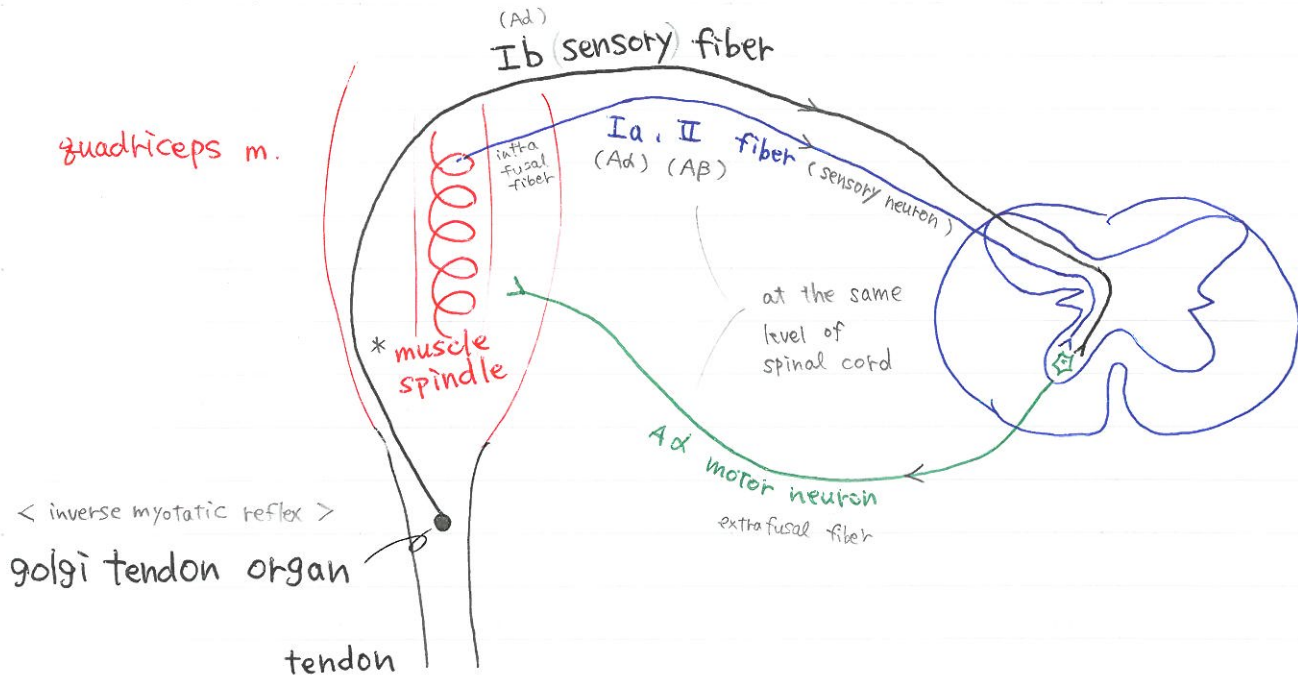 (Aα)
Ib (sensory) fiber
quadriceps m.
intra
fusal
fiber
Ia, II fiber (sensory neuron)
(Aα) (Aβ)
at the same
level of
spinal cord
* muscle
spindle
Aα motor neuron
extrafusal fiber
< inverse myotatic reflex >
golgi tendon organ
tendon